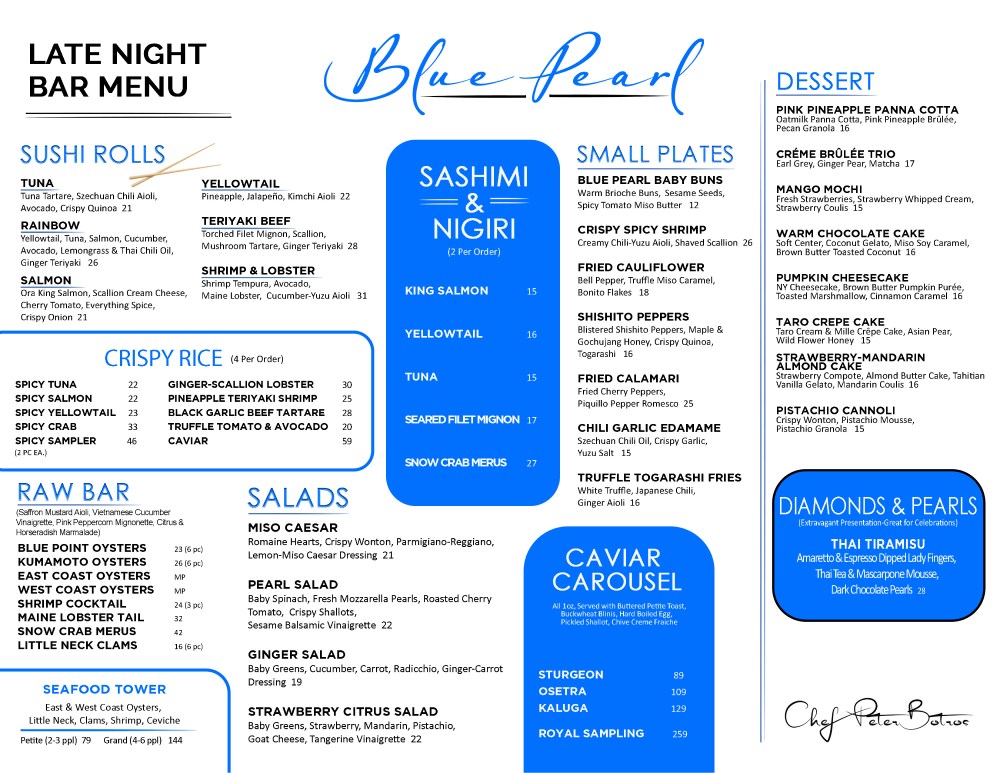 LATE NIGHT
BAR MENU
Blue Pearl
SUSHI ROLLS
TUNA
Tuna Tartare, Szechuan Chili Aioli,
Avocado, Crispy Quinoa 21
RAINBOW
Yellowtail, Tuna, Salmon, Cucumber,
Avocado, Lemongrass & Thai Chili Oil,
Ginger Teriyaki 26
SALMON
Ora King Salmon, Scallion Cream Cheese,
Cherry Tomato, Everything Spice,
Crispy Onion 21
YELLOWTAIL
Pineapple, Jalapeño, Kimchi Aioli 22
TERIYAKI BEEF
Torched Filet Mignon, Scallion,
Mushroom Tartare, Ginger Teriyaki 28
SHRIMP & LOBSTER
Shrimp Tempura, Avocado,
Maine Lobster, Cucumber-Yuzu Aioli 31
CRISPY RICE (4 Per Order)
SPICY TUNA 22
SPICY SALMON 22
SPICY YELLOWTAIL 23
SPICY CRAB 33
SPICY SAMPLER 46
(2 PC EA.)
GINGER-SCALLION LOBSTER 30
PINEAPPLE TERIYAKI SHRIMP 25
BLACK GARLIC BEEF TARTARE 28
TRUFFLE TOMATO & AVOCADO 20
CAVIAR 59
RAW BAR
(Saffron Mustard Aioli, Vietnamese Cucumber
Vinaigrette, Pink Peppercorn Mignonette, Citrus &
Horseradish Marmalade)
BLUE POINT OYSTERS 23 (6 pc)
KUMAMOTO OYSTERS 26 (6 pc)
EAST COAST OYSTERS MP
WEST COAST OYSTERS MP
SHRIMP COCKTAIL 24 (3 pc)
MAINE LOBSTER TAIL 32
SNOW CRAB MERUS 42
LITTLE NECK CLAMS 16 (6 pc)
SEAFOOD TOWER
East & West Coast Oysters,
Little Neck, Clams, Shrimp, Ceviche
Petite (2-3 ppl) 79 Grand (4-6 ppl) 144
SALADS
MISO CAESAR
Romaine Hearts, Crispy Wonton, Parmigiano-Reggiano,
Lemon-Miso Caesar Dressing 21
PEARL SALAD
Baby Spinach, Fresh Mozzarella Pearls, Roasted Cherry
Tomato, Crispy Shallots,
Sesame Balsamic Vinaigrette 22
GINGER SALAD
Baby Greens, Cucumber, Carrot, Radicchio, Ginger-Carrot
Dressing 19
STRAWBERRY CITRUS SALAD
Baby Greens, Strawberry, Mandarin, Pistachio,
Goat Cheese, Tangerine Vinaigrette 22
SASHIMI
&
NIGIRI
(2 Per Order)
KING SALMON 15
YELLOWTAIL 16
TUNA 15
SEARED FILET MIGNON 17
SNOW CRAB MERUS 27
SMALL PLATES
BLUE PEARL BABY BUNS
Warm Brioche Buns, Sesame Seeds,
Spicy Tomato Miso Butter 12
CRISPY SPICY SHRIMP
Creamy Chili-Yuzu Aioli, Shaved Scallion 26
FRIED CAULIFLOWER
Bell Pepper, Truffle Miso Caramel,
Bonito Flakes 18
SHISHITO PEPPERS
Blistered Shishito Peppers, Maple &
Gochujang Honey, Crispy Quinoa,
Togarashi 16
FRIED CALAMARI
Fried Cherry Peppers,
Piquillo Pepper Romesco 25
CHILI GARLIC EDAMAME
Szechuan Chili Oil, Crispy Garlic,
Yuzu Salt 15
TRUFFLE TOGARASHI FRIES
White Truffle, Japanese Chili,
Ginger Aioli 16
CAVIAR
CAROUSEL
All 1oz, Served with Buttered Petite Toast,
Buckwheat Blinis, Hard Boiled Egg,
Pickled Shallot, Chive Creme Fraiche
STURGEON 89
OSETRA 109
KALUGA 129
ROYAL SAMPLING 259
DESSERT
PINK PINEAPPLE PANNA COTTA
Oatmilk Panna Cotta, Pink Pineapple Brûlée,
Pecan Granola 16
CRÉME BRÛLÉE TRIO
Earl Grey, Ginger Pear, Matcha 17
MANGO MOCHI
Fresh Strawberries, Strawberry Whipped Cream,
Strawberry Coulis 15
WARM CHOCOLATE CAKE
Soft Center, Coconut Gelato, Miso Soy Caramel,
Brown Butter Toasted Coconut 16
PUMPKIN CHEESECAKE
NY Cheesecake, Brown Butter Pumpkin Purée,
Toasted Marshmallow, Cinnamon Caramel 16
TARO CREPE CAKE
Taro Cream & Mille Crêpe Cake, Asian Pear,
Wild Flower Honey 15
STRAWBERRY-MANDARIN
ALMOND CAKE
Strawberry Compote, Almond Butter Cake, Tahitian
Vanilla Gelato, Mandarin Coulis 16
PISTACHIO CANNOLI
Crispy Wonton, Pistachio Mousse,
Pistachio Granola 15
DIAMONDS & PEARLS
(Extravagant Presentation-Great for Celebrations)
THAI TIRAMISU
Amaretto & Espresso Dipped Lady Fingers,
Thai Tea & Mascarpone Mousse,
Dark Chocolate Pearls 28
Chef Peter Botros